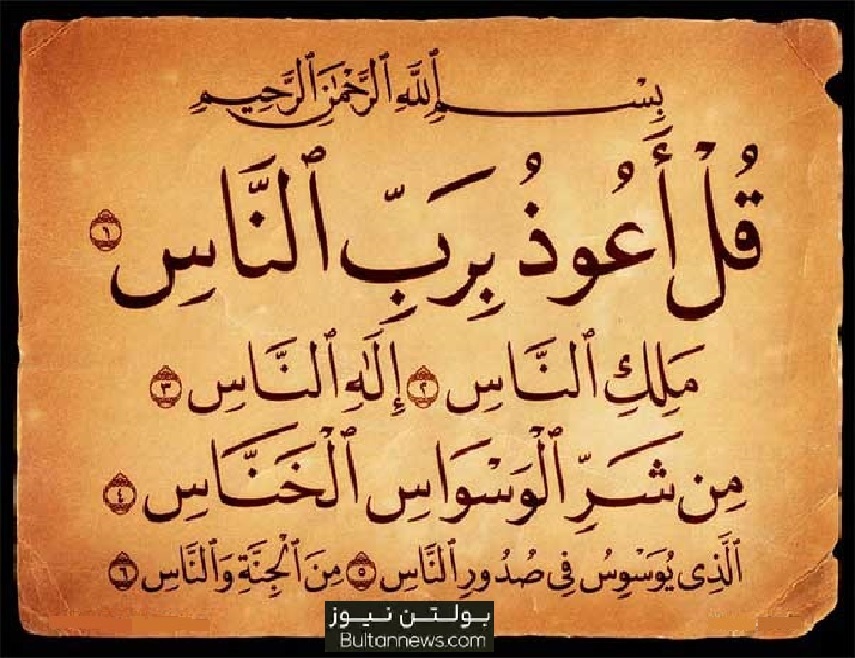 بِسْمِ ٱللَّهِ ٱلرَّحْمَٰنِ ٱلرَّحِيمِ
قُلْ أَعُوذُ بِرَبِّ ٱلنَّاسِ ١
مَلِكِ ٱلنَّاسِ ٢ إِلَٰهِ ٱلنَّاسِ ٣
مِن شَرِّ ٱلْوَسْوَاسِ ٱلْخَنَّاسِ ٤
ٱلَّذِى يُوَسْوِسُ فِى صُدُورِ ٱلنَّاسِ ٥ مِنَ ٱلْجِنَّةِ وَٱلنَّاسِ ٦
بولتن نیوز
Bultannews.com